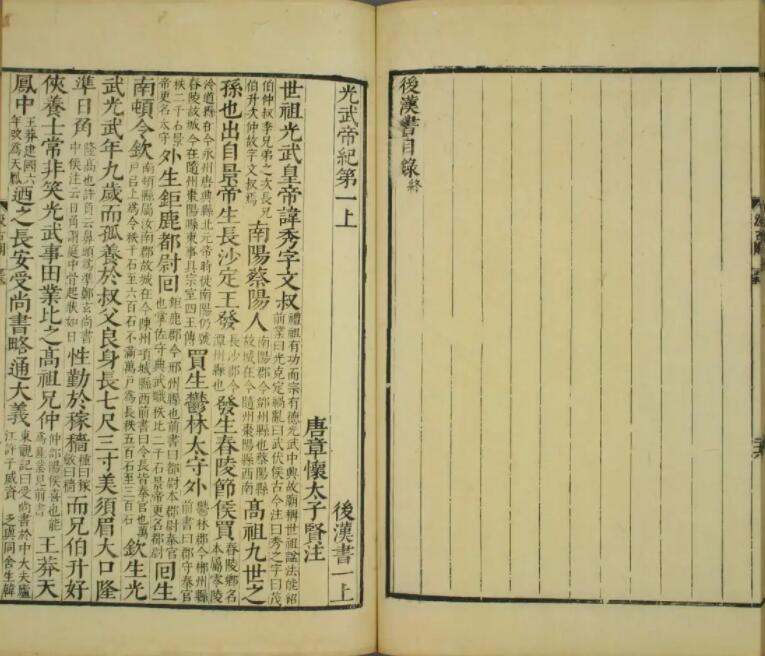 後漢書目錄終
光武帝紀第一上　後漢書一上
唐章懷太子賢注
世祖光武皇帝諱秀字文叔禮祖有功而宗有德光武中興故廟稱世祖諡法能紹前業曰光克定禍亂曰武伏侯古今注曰秀之字曰茂
伯仲叔季兄弟之次長兄伯升次仲故字文叔焉南陽蔡陽人南陽郡今鄧州縣也蔡陽縣故城在今隨州棗陽縣西南高祖九世之
孫也出自景帝生長沙定王發長沙郡今潭州縣也發生舂陵節侯買舂陵鄉名本屬零陵
泠道縣在今永州唐興縣北元帝時徙南陽仍號舂陵故城今在隨州棗陽縣東事具宗室四王傳買生鬱林太守外鬱林郡今郴州縣前書曰郡守秦官
秩二千石景帝更名太守外生鉅鹿都尉回鉅鹿郡今邢州縣也前書曰都尉本郡尉秦官也掌佐守典武職秩比二千石景帝更名都尉回生
南頓令欽南頓縣屬汝南郡故城在今陳州項城縣西前書曰令長皆秦官也萬戶已上爲令秩千石至六百石不滿萬戶爲長秩五百石至三百石欽生光
武光武年九歲而孤養於叔父良身長七尺三寸美須眉大口隆
準日角隆高也許負云鼻頭爲準鄭玄尚書中候注云日角謂庭中骨起狀如日性勤於稼穡種曰稼斂曰穡而兄伯升好
俠養士常非笑光武事田業比之高祖兄仲仲郃陽侯喜也能爲產業見前書王莽天
鳳中王莽建國六年改爲天鳳迺之長安受尚書略通大義東觀記曰受尚書於中大夫廬江許子威資乏與同舍生韓